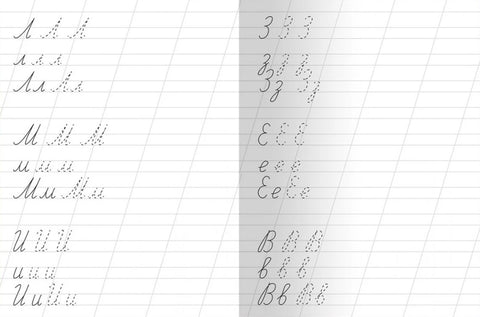 Л Л Л
л л л
Лл Лл
М М М
м м м
Мм Мм
И И И
и и и
Ии Ии
З З З
з з з
Зз Зз
Е Е Е
е е е
Ее Ее
В В В
в в в
Вв Вв